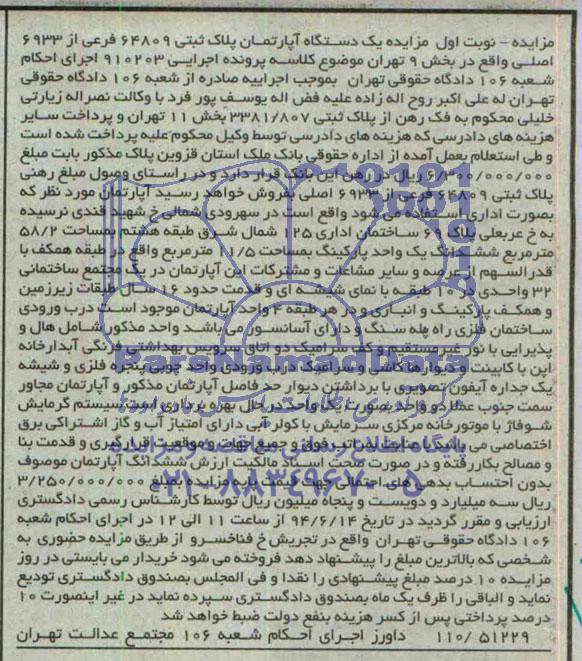 مزایده - نوبت اول مزایده یک دستگاه آپارتمان پلاک ثبتی ۶۴۸۰۹ فرعی از ۶۹۳۳
اصلی واقع در بخش ۹ تهران موضوع کلاسه پرونده اجرایی ۹۱۰۲۰۳ اجرای احکام
شعبه ۱۰۶ دادگاه حقوقی تهران بموجب اجراییه صادره از شعبه ۱۰۶ دادگاه حقوقی
تهران له علی اکبر روح اله زاده علیه فض اله یوسف پور فرد با وکالت نصراله زیارتی
خلیلی محکوم به فک رهن از پلاک ثبتی ۳۳۸۱/۸۰۷ بخش ۱۱ تهران و پرداخت سایر
هزینه های دادرسی که هزینه های دادرسی توسط وکیل محکوم علیه پرداخت شده است
و طی استعلام بعمل آمده از اداره حقوقی بانک ملک استان قزوین پلاک مذکور بابت مبلغ
۶/۳۰۰/۰۰۰/۰۰۰ ریال در رهن این بانک قرار دارد و در راستای وصول مبلغ رهنی
پلاک ثبتی ۶۴۸۰۹ فرعی از ۶۹۳۳ اصلی بفروش خواهد رسید آپارتمان مورد نظر که
بصورت اداری استفاده می شود واقع است در سهروردی شمالی خ شهید قندی نرسیده
به خ عربعلی پلاک ۶۹ ساختمان اداری ۱۲۵ شمال شرق طبقه هشتم بمساحت ۵۸/۲
مترمربع ششدانگ یک واحد پارکینگ بمساحت ۱۱/۵ مترمربع واقع در طبقه همکف با
قدرالسهم از عرصه و سایر مشاعات و مشترکات این آپارتمان در یک مجتمع ساختمانی
۳۲ واحدی در ۱۰ طبقه با نمای شیشه ای و قدمت حدود ۱۶ سال طبقات زیرزمین
و همکف پارکینگ و انباری و در هر طبقه ۴ واحد آپارتمان موجود است درب ورودی
ساختمان فلزی راه پله سنگ و دارای آسانسور می باشد واحد مذکور شامل هال و
پذیرایی با نور غیرمستقیم و کف سرامیک دو اتاق سرویس بهداشتی فرنگی آبدارخانه
اپن با کابینت و دیوارها کاشی و سرامیک درب ورودی واحد چوبی پنجره فلزی و شیشه
یک جداره آیفون تصویری با برداشتن دیوار حد فاصل آپارتمان مذکور و آپارتمان مجاور
سمت جنوب عملا دو واحد بصورت یک واحد در حال بهره برداری است سیستم گرمایش
شوفاژ با موتورخانه مرکزی سرمایش با کولر آبی دارای امتیاز آب و گاز اشتراکی برق
اختصاصی می باشد با عنایت به مراتب فوق و جمیع جهات و موقعیت قرارگیری و قدمت بنا
و مصالح بکاررفته و در صورت صحت اسناد مالکیت ارزش ششدانگ آپارتمان موصوف
بدون احتساب بدهی های احتمالی جهت قیمت پایه مزایده بمبلغ ۳/۲۵۰/۰۰۰/۰۰۰
ریال سه میلیارد و دویست و پنجاه میلیون ریال توسط کارشناس رسمی دادگستری
ارزیابی و مقرر گردید در تاریخ ۹۴/۶/۱۴ از ساعت ۱۱ الی ۱۲ در اجرای احکام شعبه
۱۰۶ دادگاه حقوقی تهران واقع در تجریش خ فناخسرو از طریق مزایده حضوری به
شخصی که بالاترین مبلغ را پیشنهاد دهد فروخته می شود خریدار می بایستی در روز
مزایده ۱۰ درصد مبلغ پیشنهادی را نقدا و فی المجلس بصندوق دادگستری تودیع
نماید و الباقی را ظرف یک ماه بصندوق دادگستری سپرده نماید در غیر اینصورت ۱۰
درصد پرداختی پس از کسر هزینه بنفع دولت ضبط خواهد شد
۱۱۰/۵۱۲۲۹ داورز اجرای احکام شعبه ۱۰۶ مجتمع عدالت تهران
ParsNamadData
پایگاه اطلاع رسانی مناقصه و مزایده
۰۲۱-۸۸۳۴۹۶۷۰-۵